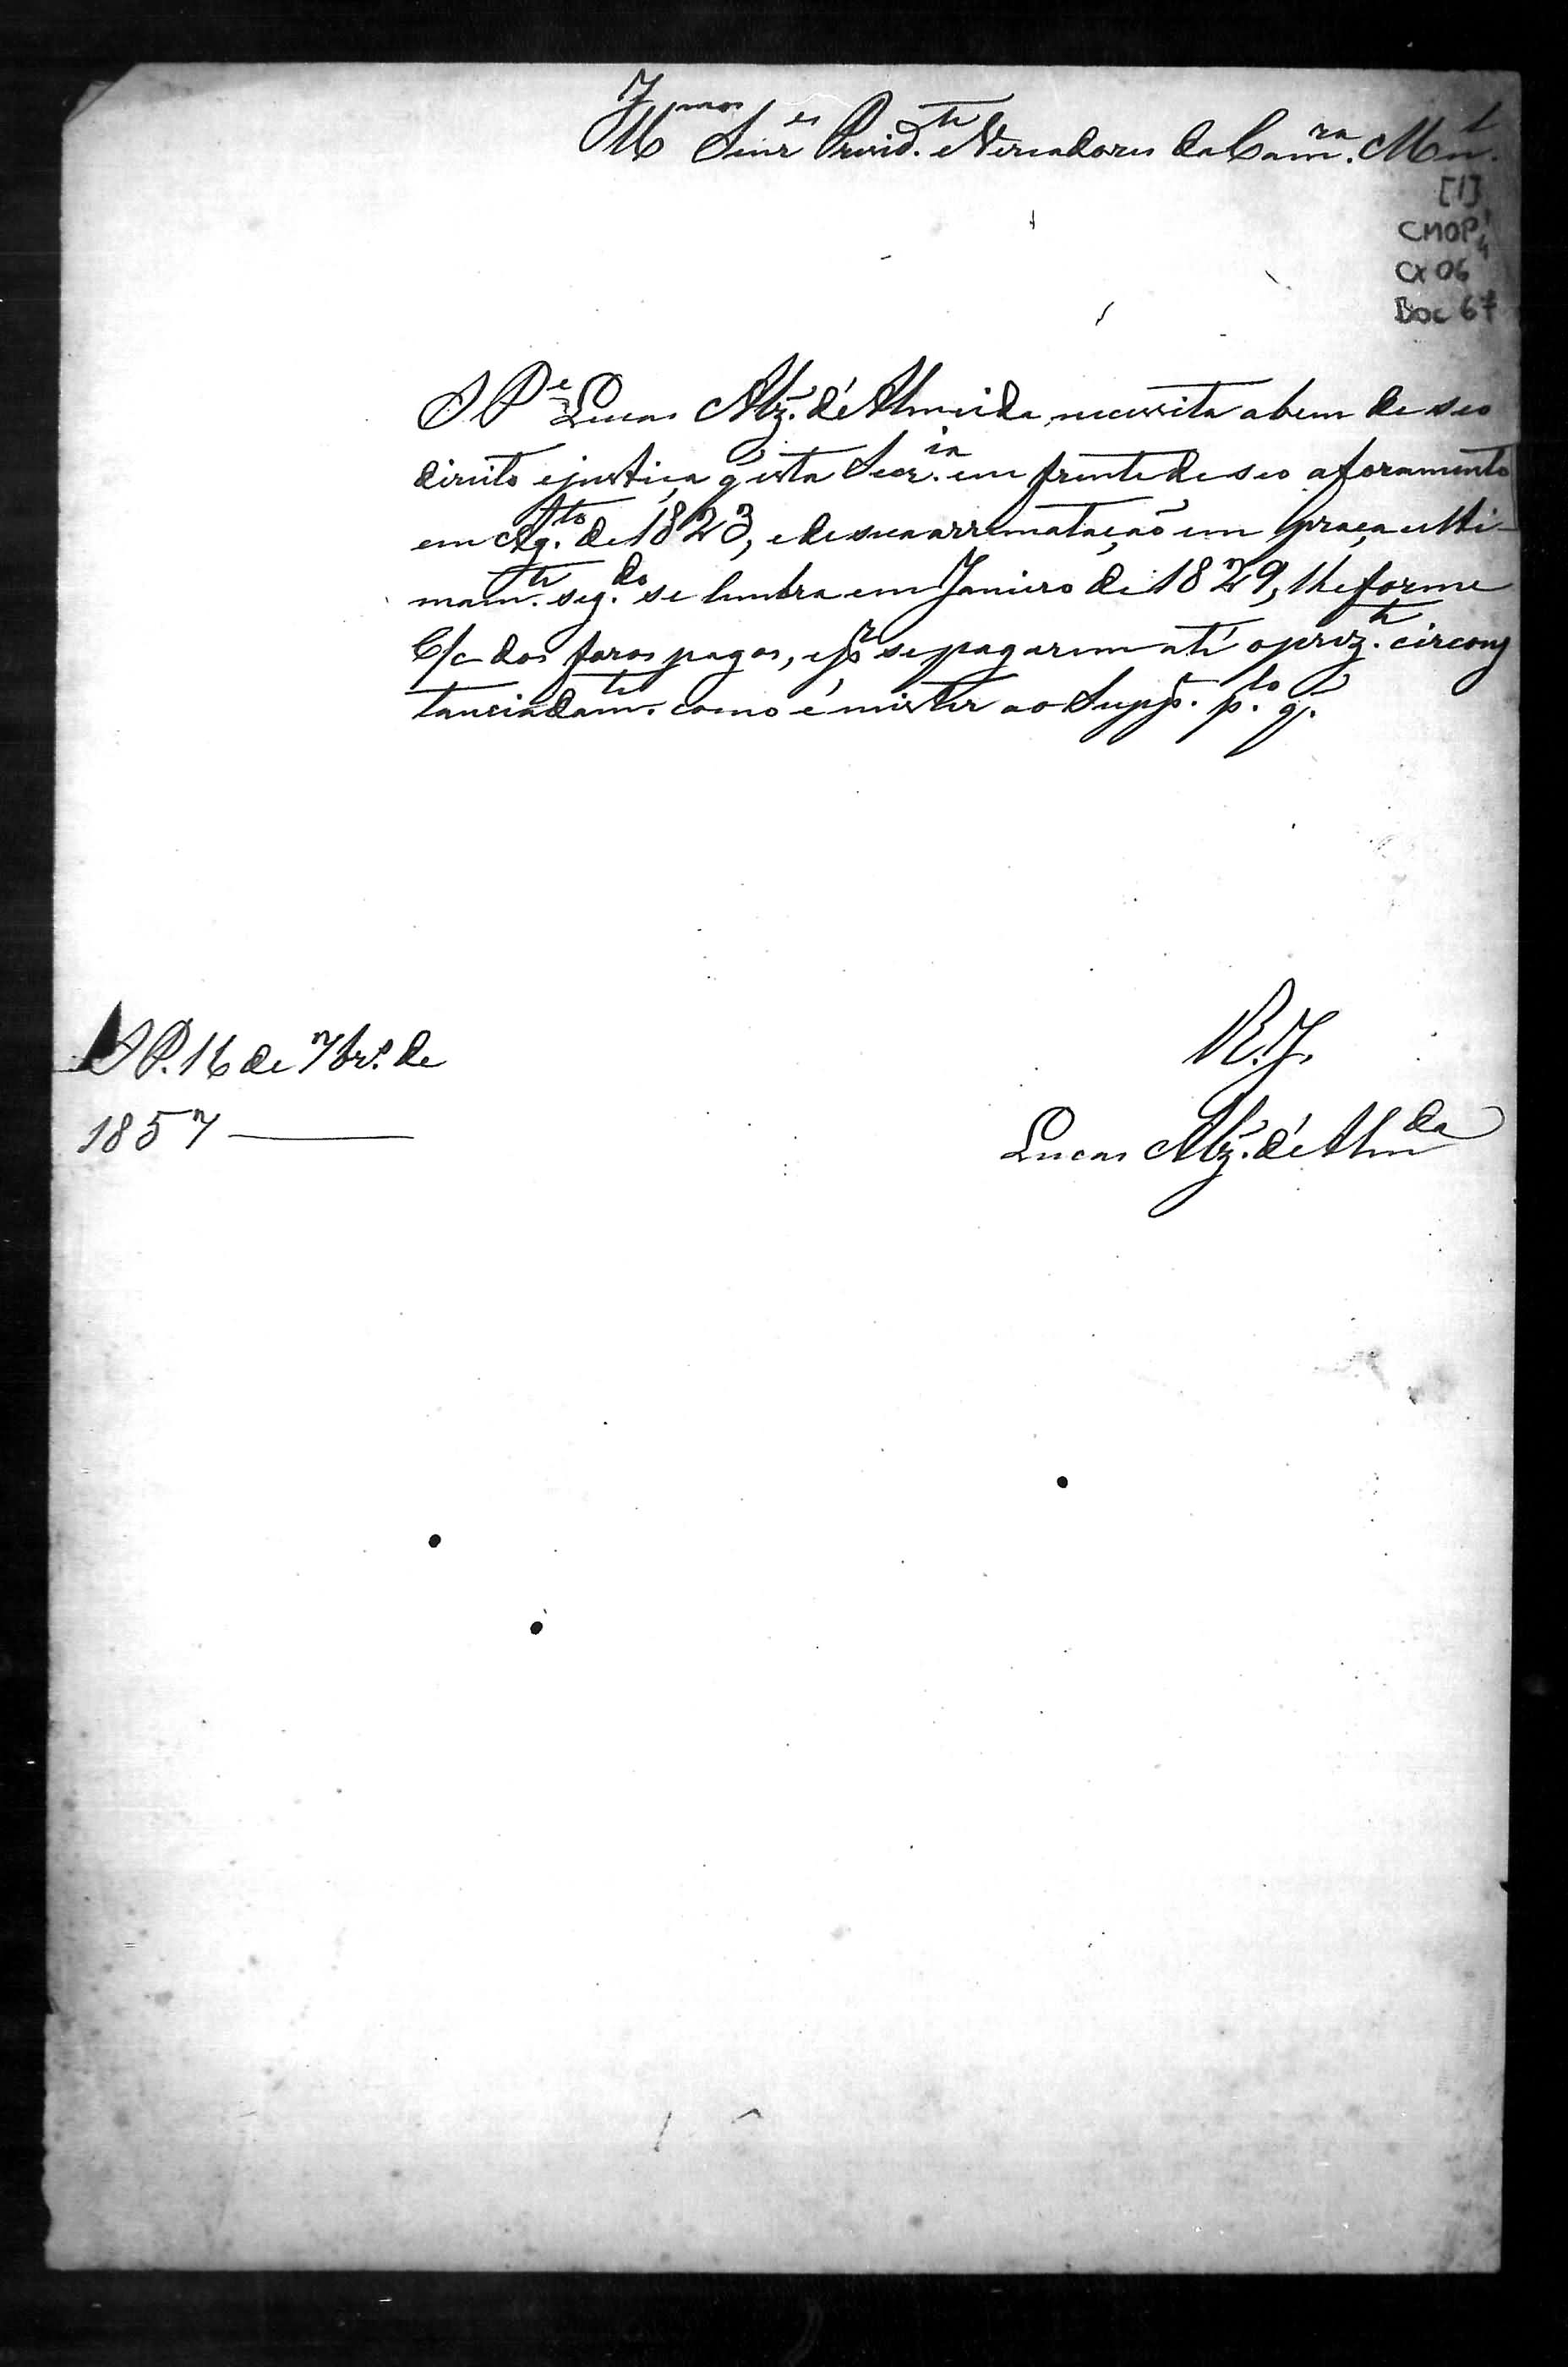 Illmos Senres Prezid.te e Vereadores da Cam.ra M.al
[1]
CMOP
Cx 06
Doc 67
O Pe Lucas Alz. d'Almeida, necessita a bem de seo
direito e justiça, q̃ esta Secr.ia em frente de seo aforamento
em Ag.to de 1823, e de sua arrematação em praça ulti-
mam.te seg.do se lembra em Janeiro de 1829, lhe forme
C/c dos foros pagos, e pr se pagarem até o prez.te circons
tanciadam.te como é mister ao Supp.e p.to q̃.
OP. 16 de 7br.o de
1857
R.J.
Lucas Alz. d'Almda